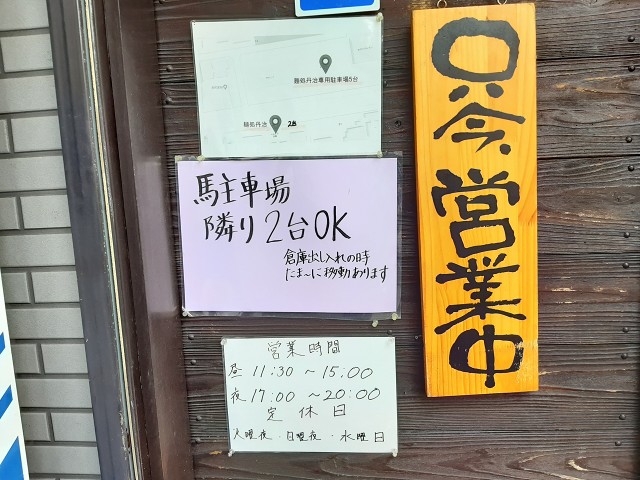 麺処丹治専用駐車場5台
麺処丹治 2台
馬主車場
隣り2台OK
倉庫出し入れの時
にま〜に移動あります
営業時間
昼 11:30 〜 15:00
夜 17:00 〜 20:00
定休日
火曜夜・日曜夜・水曜日
只今営業中